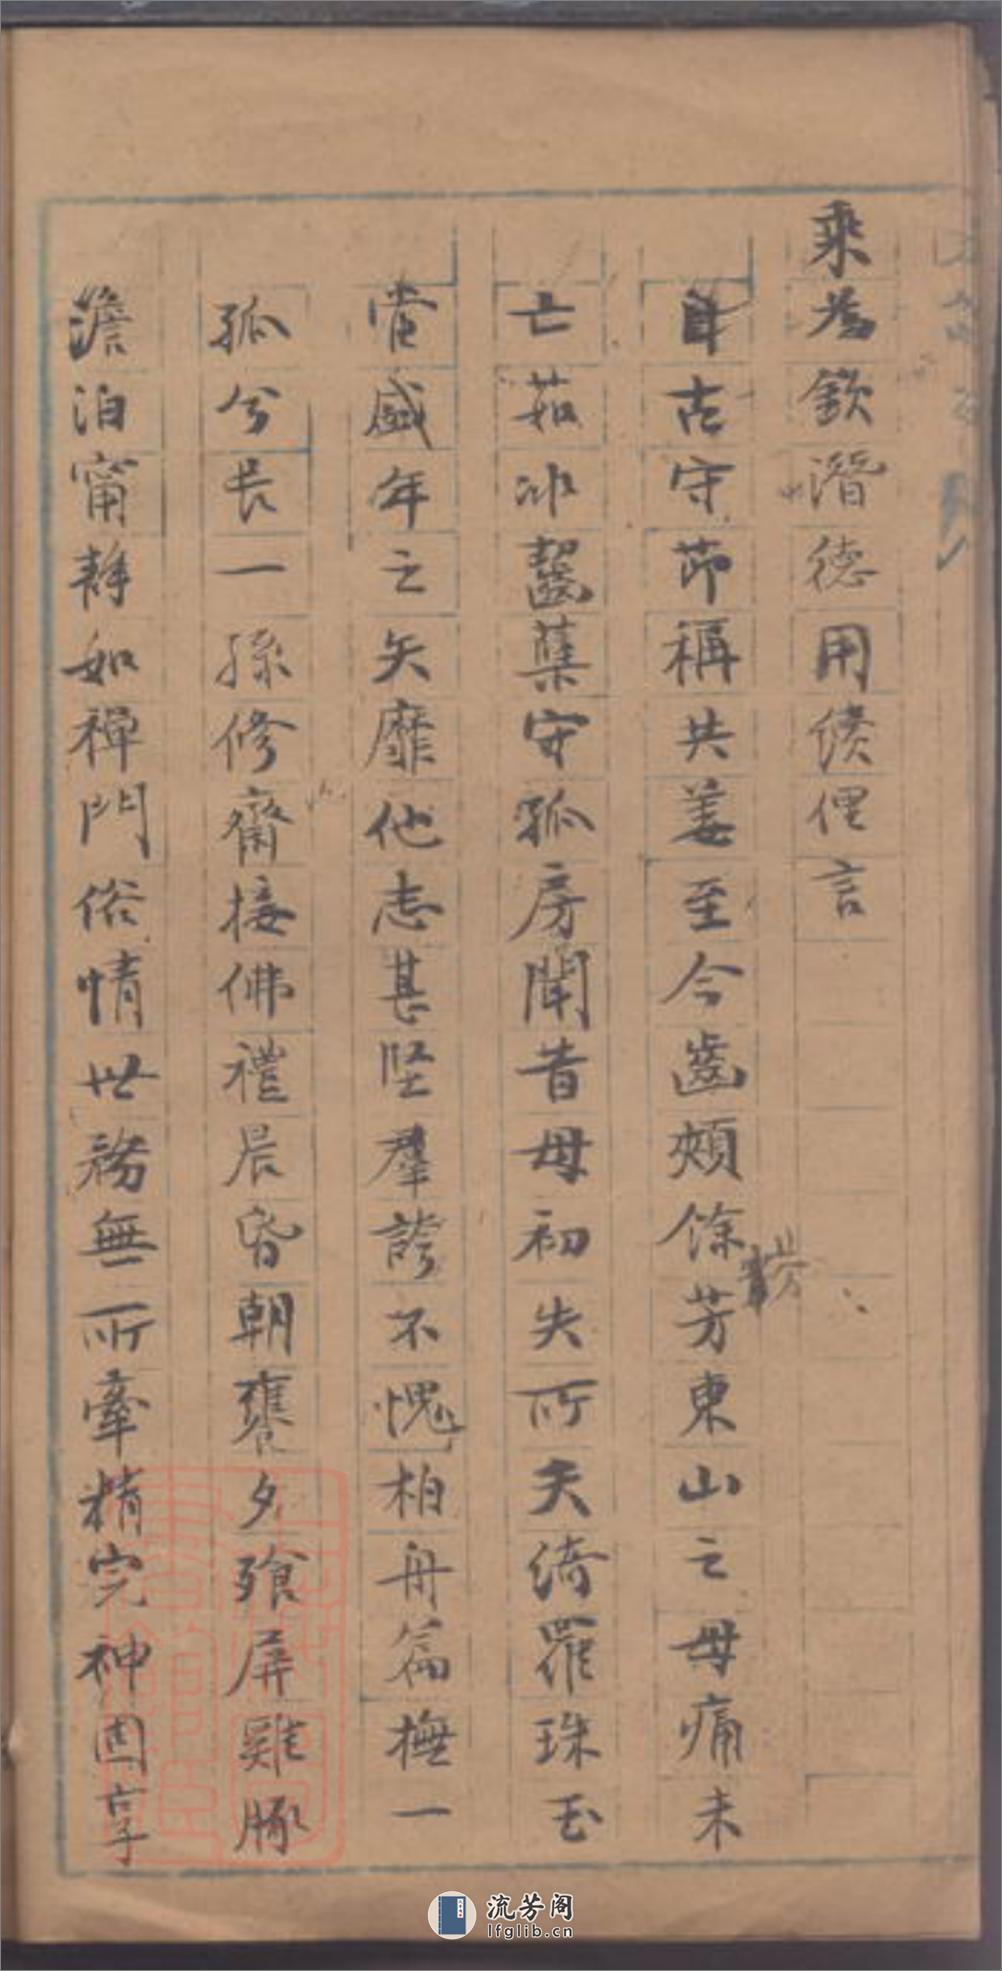 乘為欽潛德用俟俚言
自古守節稱共姜至今齒頰餘芳東山之母痛未
亡茹冰齧蘗守孤房聞昔母初失所天綺羅珠玉
當盛年之矢靡他志甚堅羣誇不愧柏舟篇撫一
孤兮長一孫修齋接佛禮晨昏朝饔夕飱屏雞豚
澹泊甯靜如禪門俗情世務無所牽精完神固享
流芳阁
lfglib.cn